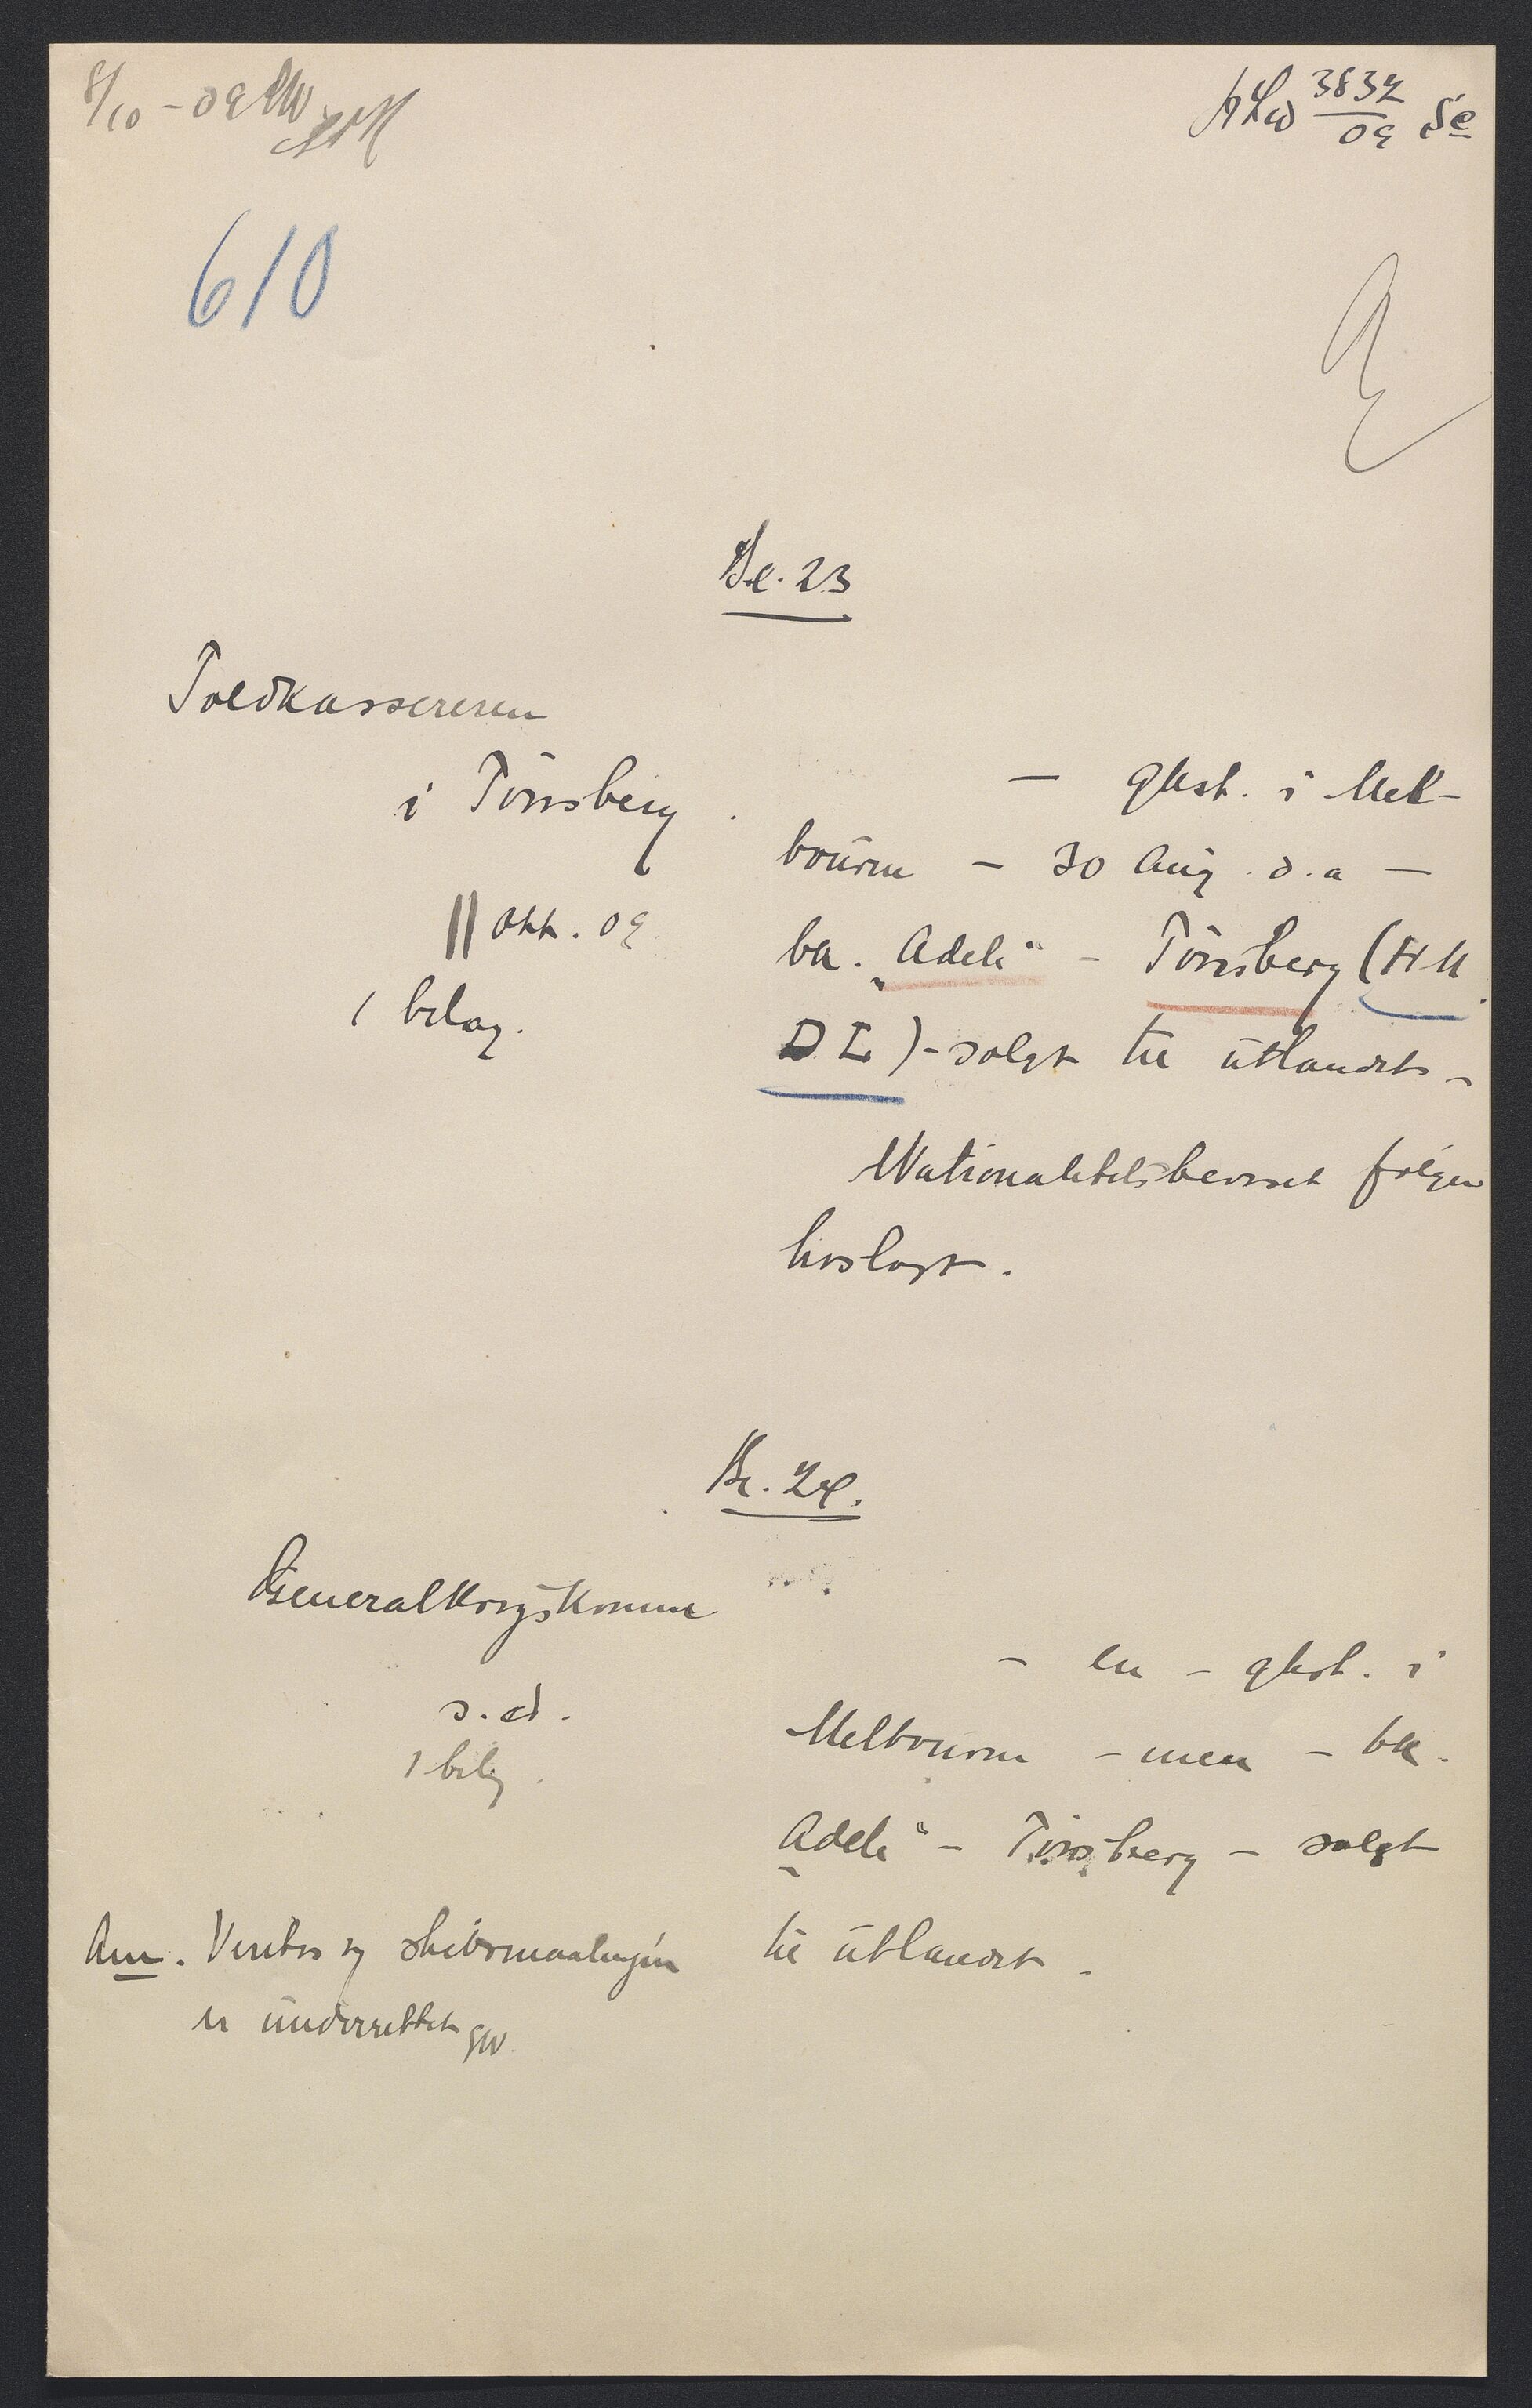 8/10 - 09
3832
09
610
Br. 23
Toldkassereren
i Tönsberg.
11 okt. 09
1 bilag.
— gkst. i Mel-
bourne — 30 Aug. d.a —
bk. „Adele“ - Tönsberg (H K
D L) - solgt til utlandet -
Nationalitetsbeviset følger
hoslagt.
Br. 24.
Generalkrigskomm
s.d.
1 bilag.
- en - gkst. i
Melbourne - men - bk.
„Adele“ - Tönsberg - solgt
til utlandet.
Anm. Veritas og skibsmaalingen
er underrettet GW.